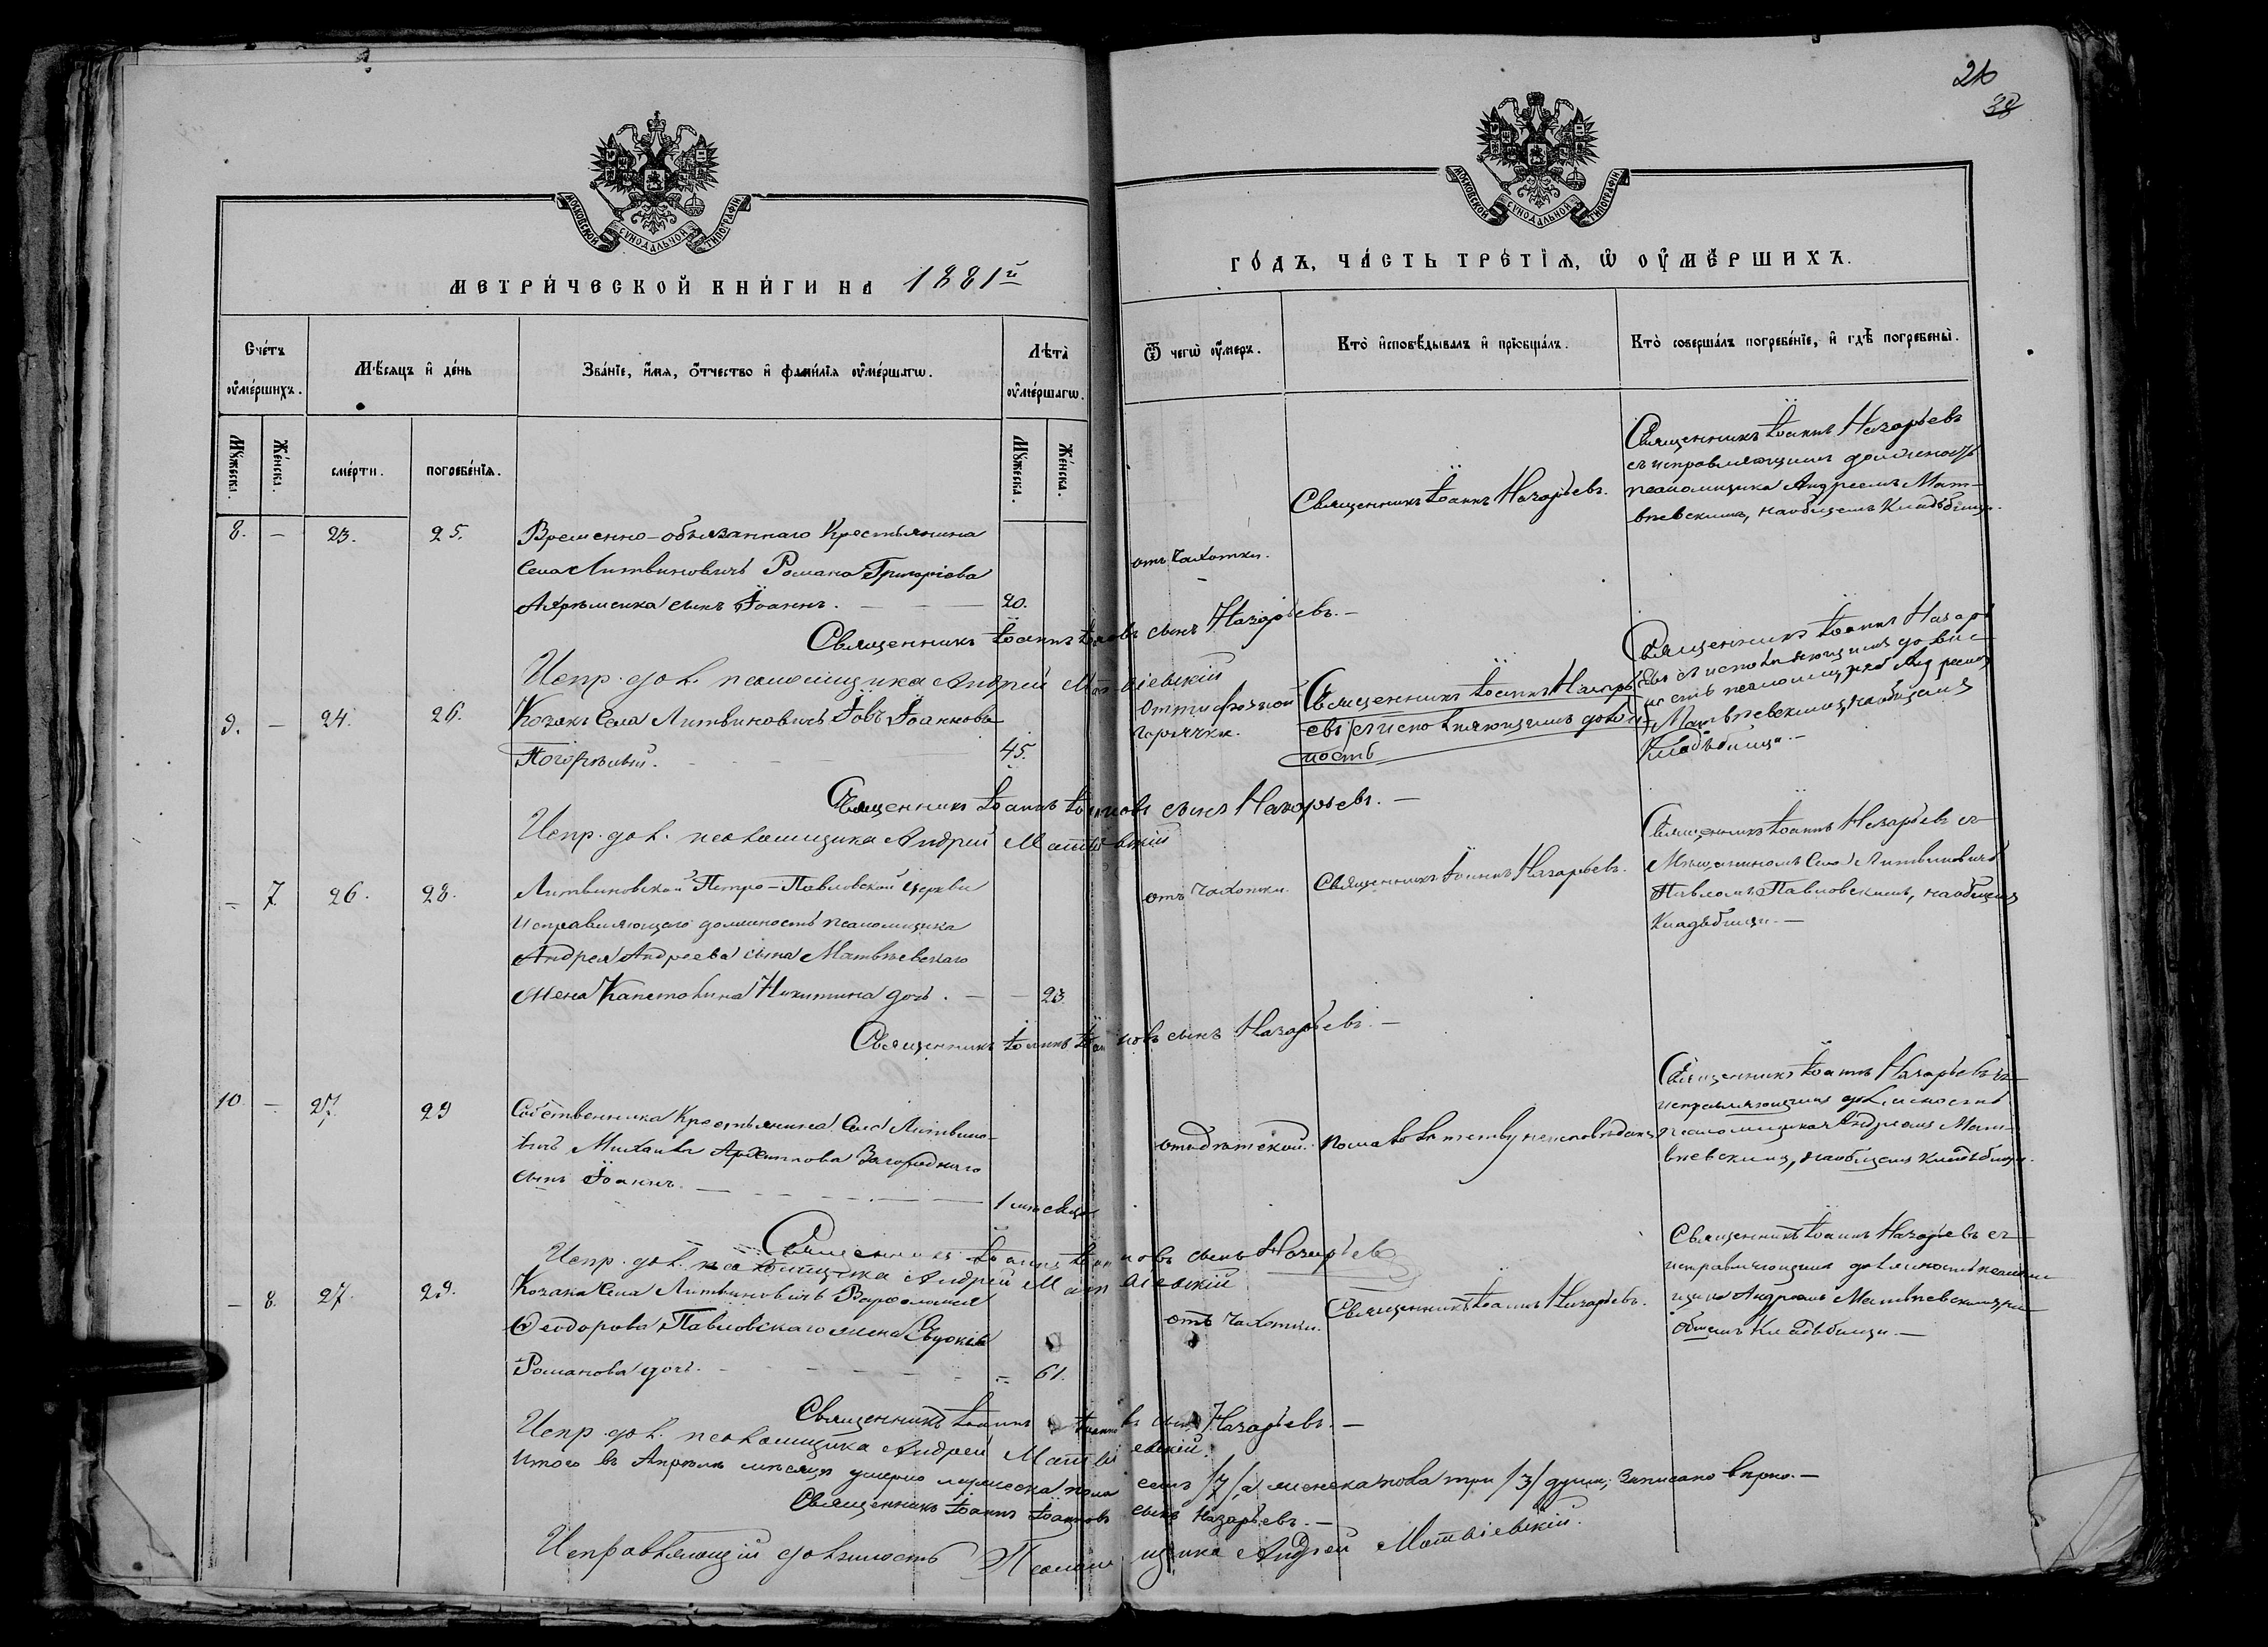 26
38
МОСКОВСКОЙ СѴНОДАЛЬНОЙ ТИПОГРАФІИ
МОСКОВСКОЙ СѴНОДАЛЬНОЙ ТИПОГРАФІИ
МЕТРИ́ЧЕСКОЙ КНИ́ГИ НА 1881й
ГО́ДЪ, ЧА́СТЬ ТРЕ́ТІѦ, Ѡ ОУМЕ́РШИХЪ.
Сче́тъ оуме́ршихъ.
Мѣ́сяцъ и де́нь
Зва́ніе, и́мя, о́тчество и фами́лія оуме́ршагѡ.
Лѣта̀ оуме́ршагѡ.
Ѿ чегѡ̀ оу́меръ.
Кто̀ исповѣ́дывалъ и пріобща́лъ.
Кто̀ соверша́лъ погребе́ніе, и гдѣ̀ погребены̀.
Мꙋ́жеска.
Же́нска.
сме́рти.
погребе́нія.
Мꙋ́жеска.
Же́нска.
8. — 23. 25.
Временно-обязаннаго Крестьянина
Села Литвиновичъ Романа Григоріева
сынъ Іоаннъ. — 20.
отъ чахотки.
Священникъ Іоаннъ Назарьевъ.
Священникъ Іоаннъ Назарьевъ
съ исправляющимъ должность
псаломщика Андреемъ Мат-
вѣевскимъ, на общемъ кладбищѣ.
Священникъ Іоаннъ Іоанновъ сынъ Назарьевъ. —
Испр. дол. псаломщика Андрей Матвіевскій
9. — 24. 26.
Козакъ Села Литвиновичъ Іовъ Іоанновъ
Погорѣлый. 45.
Отъ тифозной
горячки.
Священникъ Іоаннъ Назарь-
евъ съ исполняющимъ долж-
ность
Священникъ Іоаннъ Назарь
евъ съ исполняющимъ долж-
ность псаломщика Андреемъ
Матвѣевскимъ, на общемъ
кладбищѣ. —
Священникъ Іоаннъ Іоанновъ сынъ Назарьевъ. —
Испр. дол. псаломщика Андрей Матвіевскій
— 7. 26. 28.
Литвиновской Петро-Павловской церкви
исправляющаго должность псаломщика
Андрея Андреева сына Матвѣевскаго
жена Капетолина Никитина дочь. — 23.
отъ чахотки.
Священникъ Іоаннъ Назарьевъ.
Священникъ Іоаннъ Назарьевъ съ
Мѣщаниномъ Села Литвиновичъ
Павломъ Павловскимъ, на общемъ
кладбищѣ. —
Священникъ Іоаннъ Іоанновъ сынъ Назарьевъ. —
10 — 27. 29
Собственника Крестьянина Села Литвино-
вичъ Михаила Архиппова Загороднего
сынъ Іоаннъ. — 1 мѣсяца
отъ дѣтской.
по малолѣтству неисповѣданъ
Священникъ Іоаннъ Назарьевъ съ
исправляющимъ должность
псаломщика Андреемъ Мат-
вѣевскимъ, на общемъ кладбищѣ.
Священникъ Іоаннъ Іоанновъ сынъ Назарьевъ
Испр. дол. псаломщика Андрей Матвіевскій
— 8. 27. 29.
Козака Села Литвиновичъ Варѳоломея
Ѳеодорова Павловскаго жена Евдокія
Романова дочь. — 61.
отъ чахотки.
Священникъ Іоаннъ Назарьевъ.
Священникъ Іоаннъ Назарьевъ съ
исправляющимъ должность псалом
щика Андреемъ Матвѣевскимъ, на
общемъ кладбищѣ. —
Священникъ Іоаннъ Іоанновъ сынъ Назарьевъ. —
Испр. дол. псаломщика Андрей Матвіевскій.
Итого въ Апрѣлѣ мѣсяцѣ умерло мужеска пола семь /7/, а женска пола три /3/ души; записано вѣрно. —
Священникъ Іоаннъ Іоанновъ сынъ Назарьевъ. —
Исправляющій должность Псаломщика Андрей Матвіевскій.